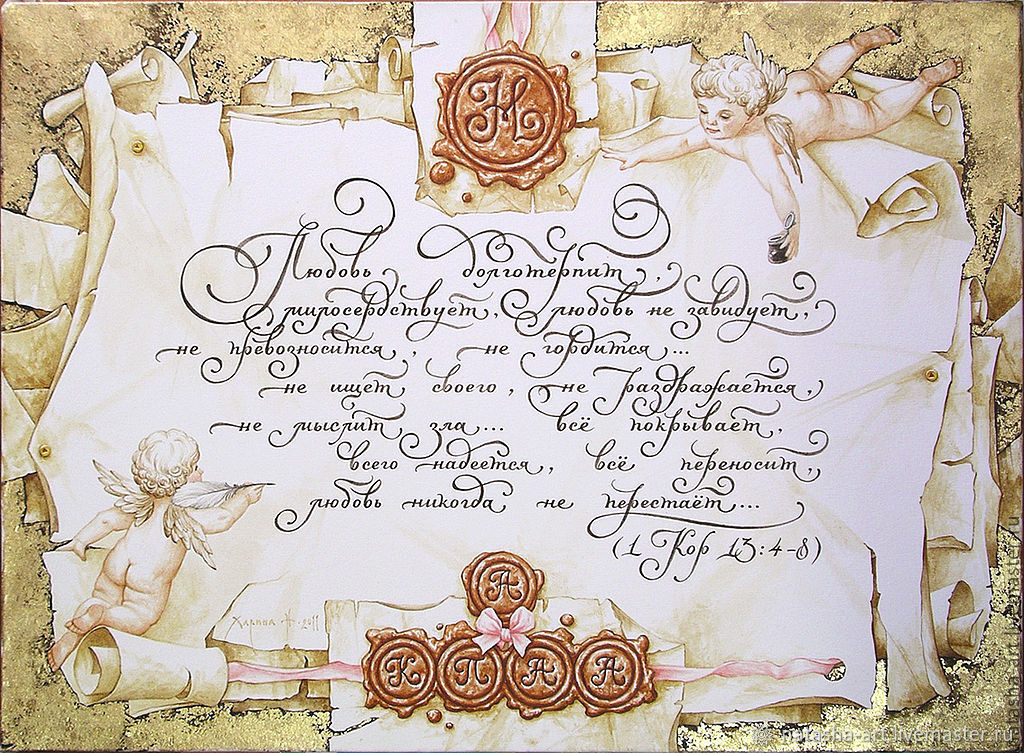 Н
Любовь долготерпит,
милосердствует, любовь не завидует,
не превозносится, не гордится...
не ищет своего, не раздражается,
не мыслит зла... всё покрывает,
всего надеется, всё переносит,
любовь никогда не перестаёт...
(1 Кор 13:4-8)
А
Харина Н. 2011
К П А А
natasha-art.livemaster.ru